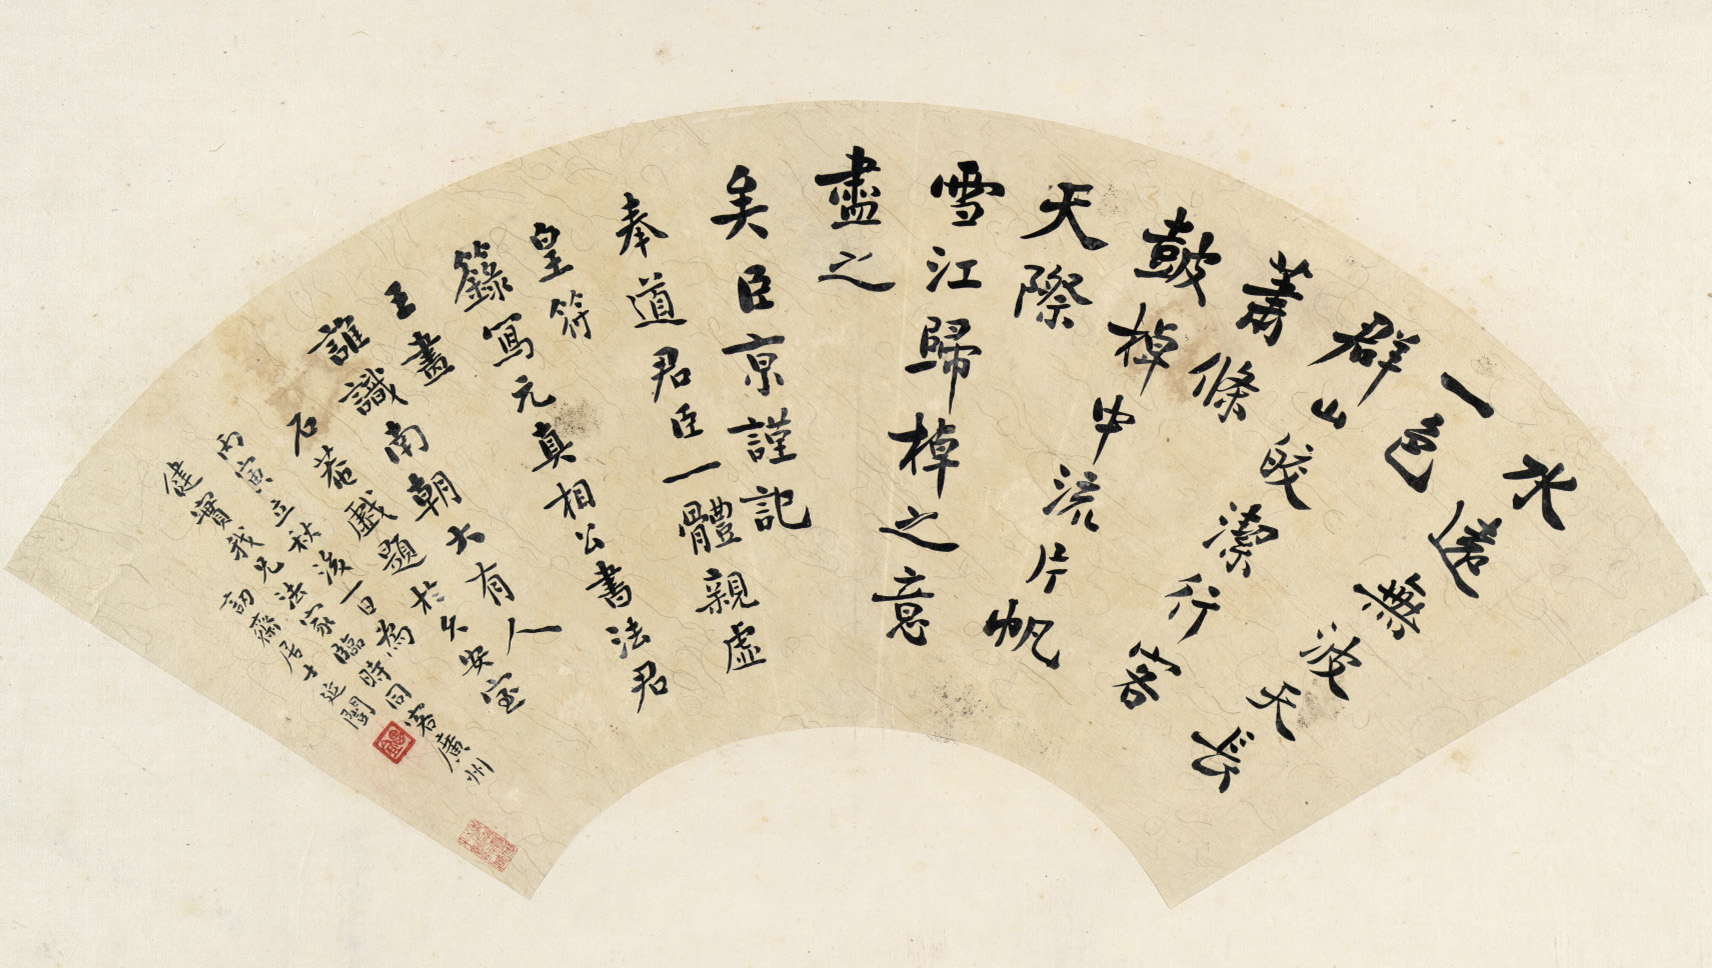 水遠無波天長
一色
群山皎潔行客
蕭條
鼓棹中流片帆
天際
雪江歸棹之意
盡之
矣臣京謹記
奉道君臣一體親虛
皇符
籙寫元真相公書法君
王畫
誰識南朝大有人
石菴戲題於久安室
丙寅立秋後一日為
健實我兄法家臨時同客廣州
訒齋居士延闓